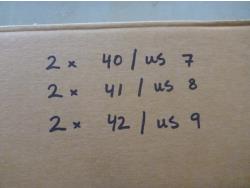 2 x 40 / us 7
2 x 41 / us 8
2 x 42 / us 9